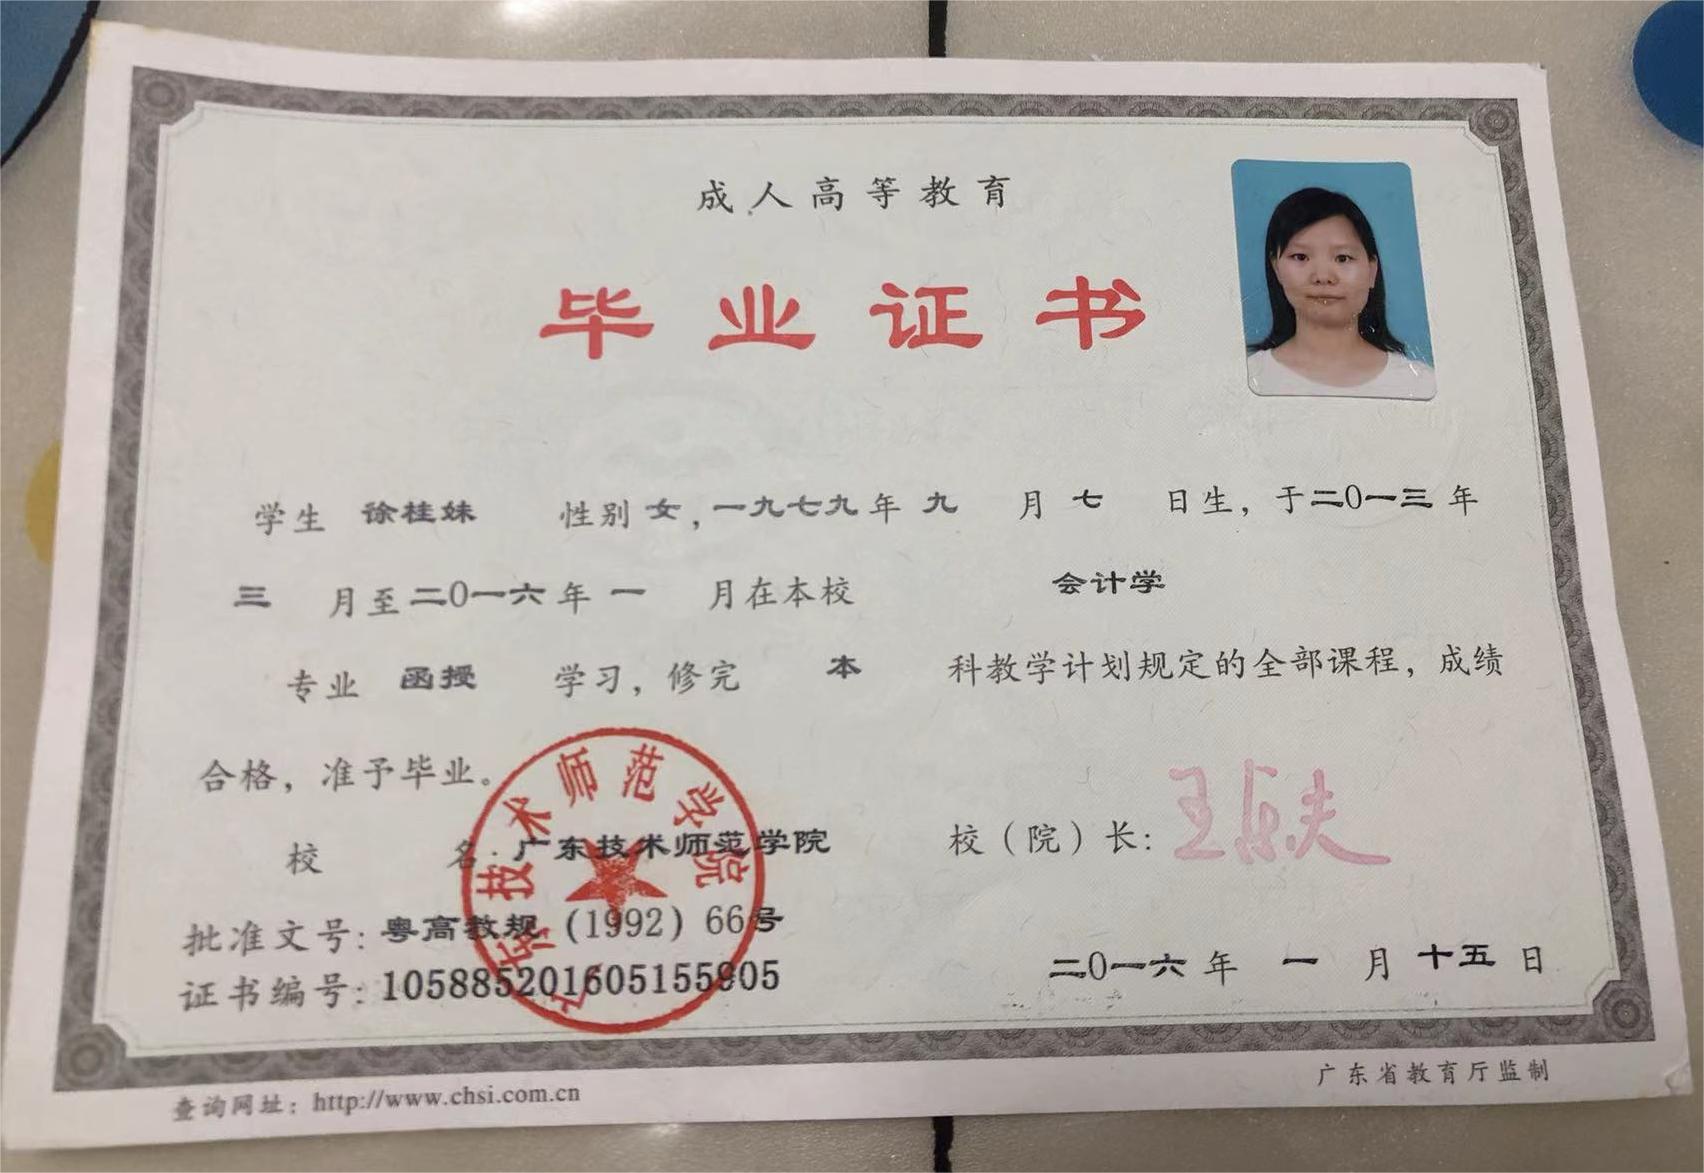 成人高等教育
毕业证书
学生 徐桂妹 性别 女，一九七九年 九 月 七 日生，于二0一三 年
三 月至二0一六年 一 月在本校 会计学
专业 函授 学习，修完 本 科教学计划规定的全部课程，成绩
合格，准予毕业。
校 名：广东技术师范学院
校（院）长：王乐夫
批准文号：粤高教规（1992）66号
证书编号：105885201605155905
二0一六 年 一 月 十五 日
广东技术师范学院
查询网址：http://www.chsi.com.cn
广东省教育厅监制